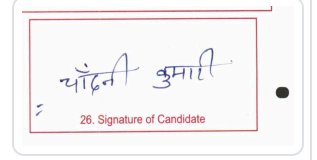 चाँदनी कुमारी
26. Signature of Candidate